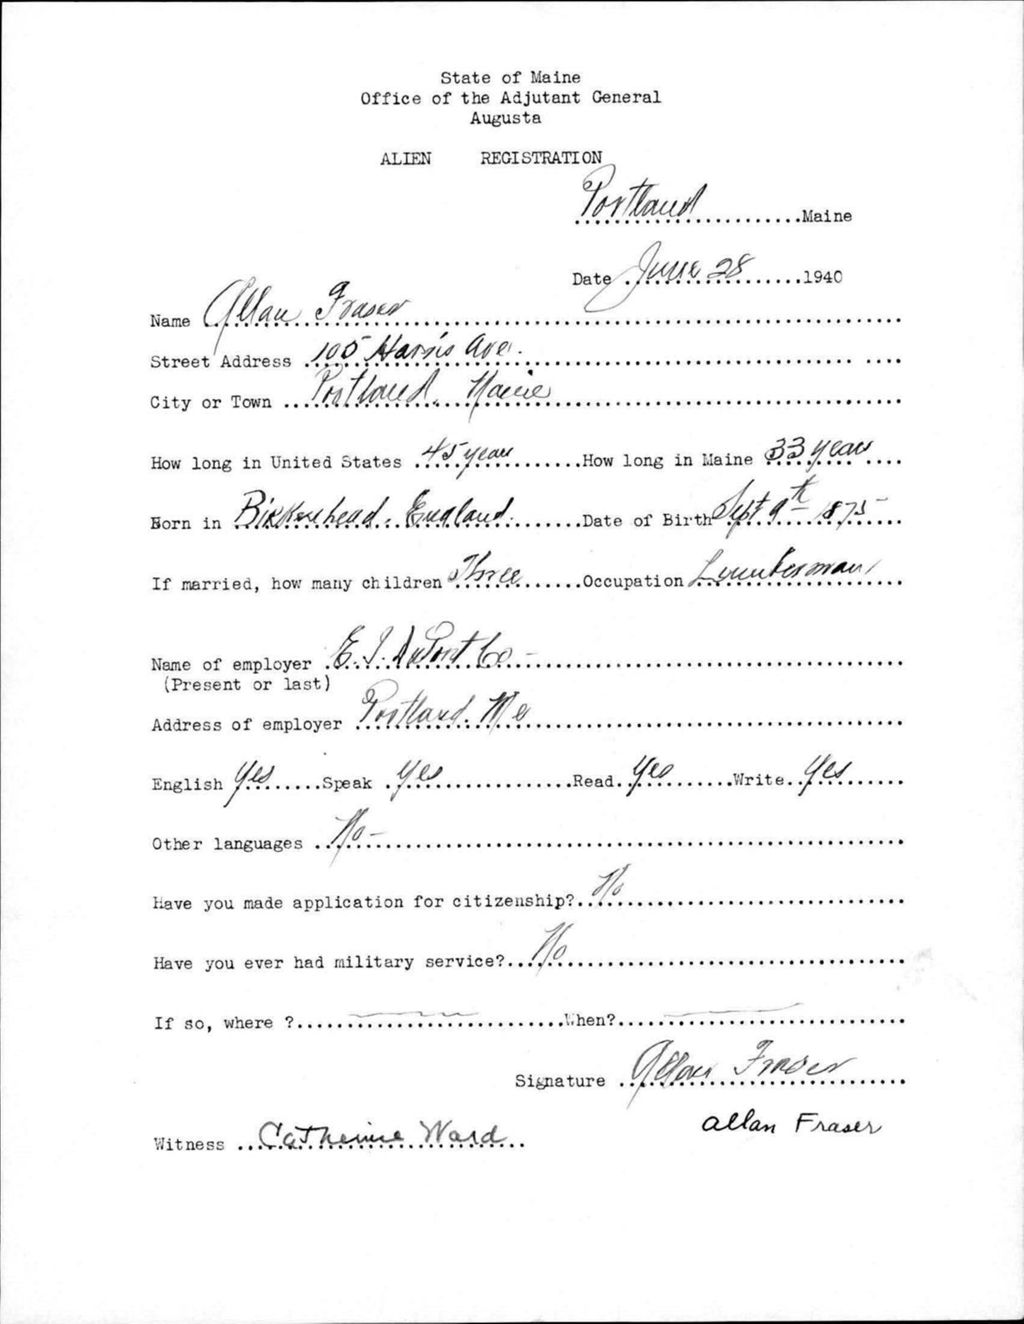 State of Maine
Office of the Adjutant General
Augusta
ALIEN REGISTRATION
Portland, Maine
Date June 28 1940
Name Allan Fraser
Street Address 105 Harris Ave.
City or Town Portland, Maine
How long in United States 45 years How long in Maine 33 years
Born in Birkenhead, England. Date of Birth Sept 9th 1875
If married, how many children Three Occupation Lumberman
Name of employer E. I. DuPont Co -
(Present or last)
Address of employer Portland, Me
English Yes Speak Yes Read Yes Write Yes
Other languages No -
Have you made application for citizenship? No
Have you ever had military service? No
If so, where ? When?
Signature Allan Fraser
Allan Fraser
Witness Catherine Ward